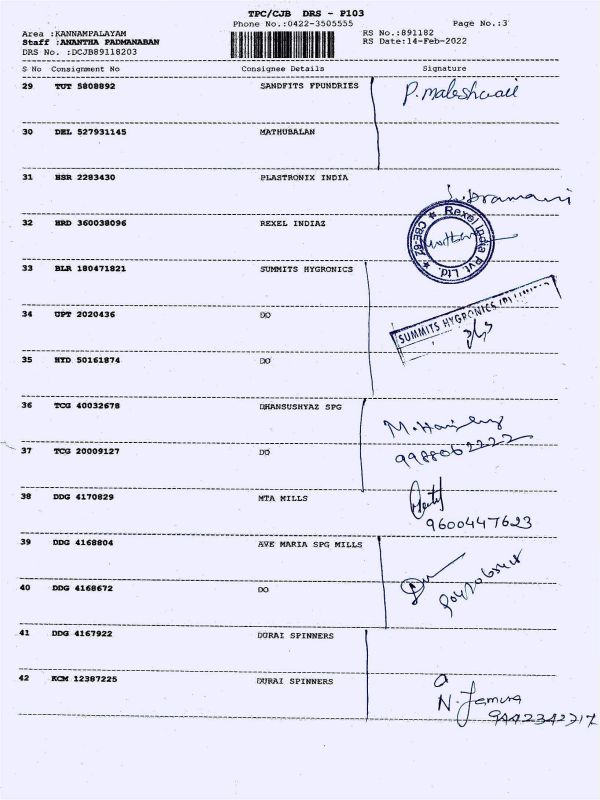 TPC/CJB DRS - P103
Phone No.:0422-3505555
Page No.:3
Area :KANNAMPALAYAM
RS No.:891182
Staff :ANANTHA PADMANABAN
RS Date:14-Feb-2022
DRS No. :DCJB89118203
S No Consignment No Consignee Details Signature
29 TUT 5808892 SANDFITS FPUNDRIES
P. maheshwari
30 DEL 527931145 MATHUBALAN
31 HSR 2283430 PLASTRONIX INDIA
32 HRD 360038096 REXEL INDIAZ
Rexel India Pvt. Ltd. ★ CBE-62 ★
33 BLR 180471821 SUMMITS HYGRONICS
34 UPT 2020436 DO
SUMMITS HYGRONICS
35 HYD 50161874 DO
36 TCG 40032678 DHANSUSHYAZ SPG
37 TCG 20009127 DO
9988062222
38 DDG 4170829 MTA MILLS
9600447623
39 DDG 4168804 AVE MARIA SPG MILLS
40 DDG 4168672 DO
41 DDG 4167922 DURAI SPINNERS
42 KCM 12387225 DURAI SPINNERS
N. Jamuna
9442342717